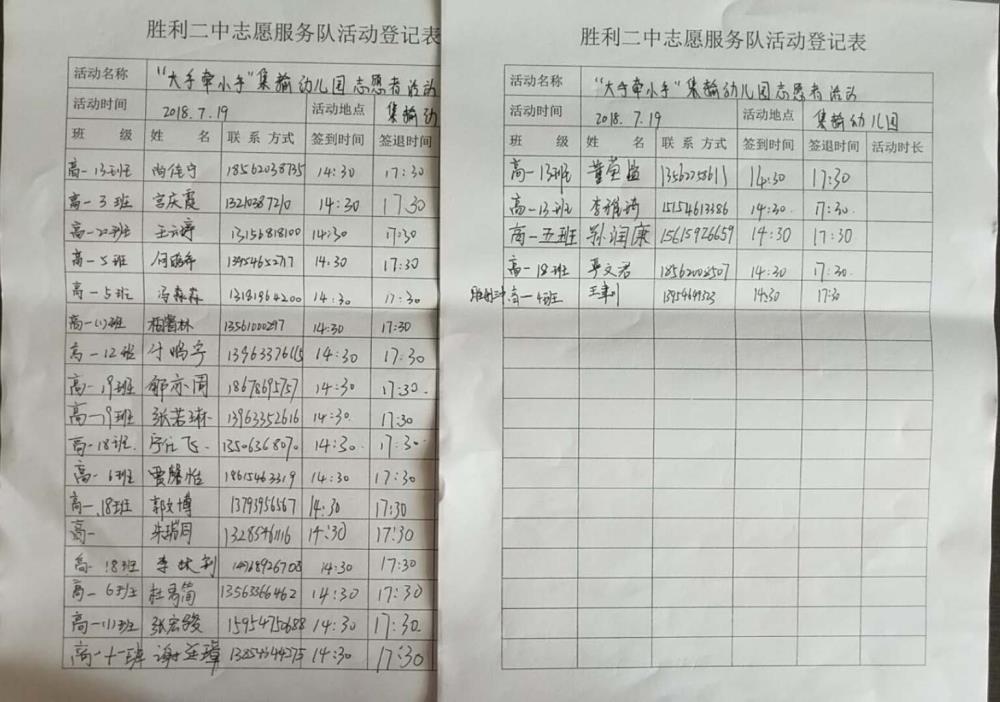 胜利二中志愿服务队活动登记表
活动名称 “大手牵小手”集输幼儿园志愿者活动
活动时间 2018.7.19 活动地点 集输幼
班 级 姓 名 联系方式 签到时间 签退时间
高一13班 尚佳宁 18562038735 14:30 17:30
高一3班 宫庆霞 13210387210 14:30 17:30
高一20班 13156818100 14:30 17:30
高一5班 13954652717 14:30 17:30
高一5班 冯森森 13181964200 14:30 17:30
13561000297 14:30 17:30
高一12班 付鸣宇 14:30 17:30
高一19班 郇亦周 18678695757 14:30 17:30
高一19班 张若琳 13963352616 14:30 17:30
高一18班 13506368070 14:30 17:30
高一6班 贾馨怡 18615463319 14:30 17:30
高一18班 郭文博 13793956567 14:30 17:30
高一 朱瑞同 13285461116 14:30 17:30
高一18班 14:30 17:30
高一6班 杜秀简 13563366462 14:30 17:30
高一11班 张宏骏 15954750688 14:30 17:30
高一十一班 13854644275 14:30 17:30
胜利二中志愿服务队活动登记表
活动名称 “大手牵小手”集输幼儿园志愿者活动
活动时间 2018.7.19 活动地点 集输幼儿园
班 级 姓 名 联系方式 签到时间 签退时间 活动时长
高一13班 13562758611 14:30 17:30
高一13班 李维琦 15154613386 14:30 17:30
高一五班 孙润康 15615926659 14:30 17:30
高一18班 18562008507 14:30 17:30
胜利二中高一4班 14:30 17:30